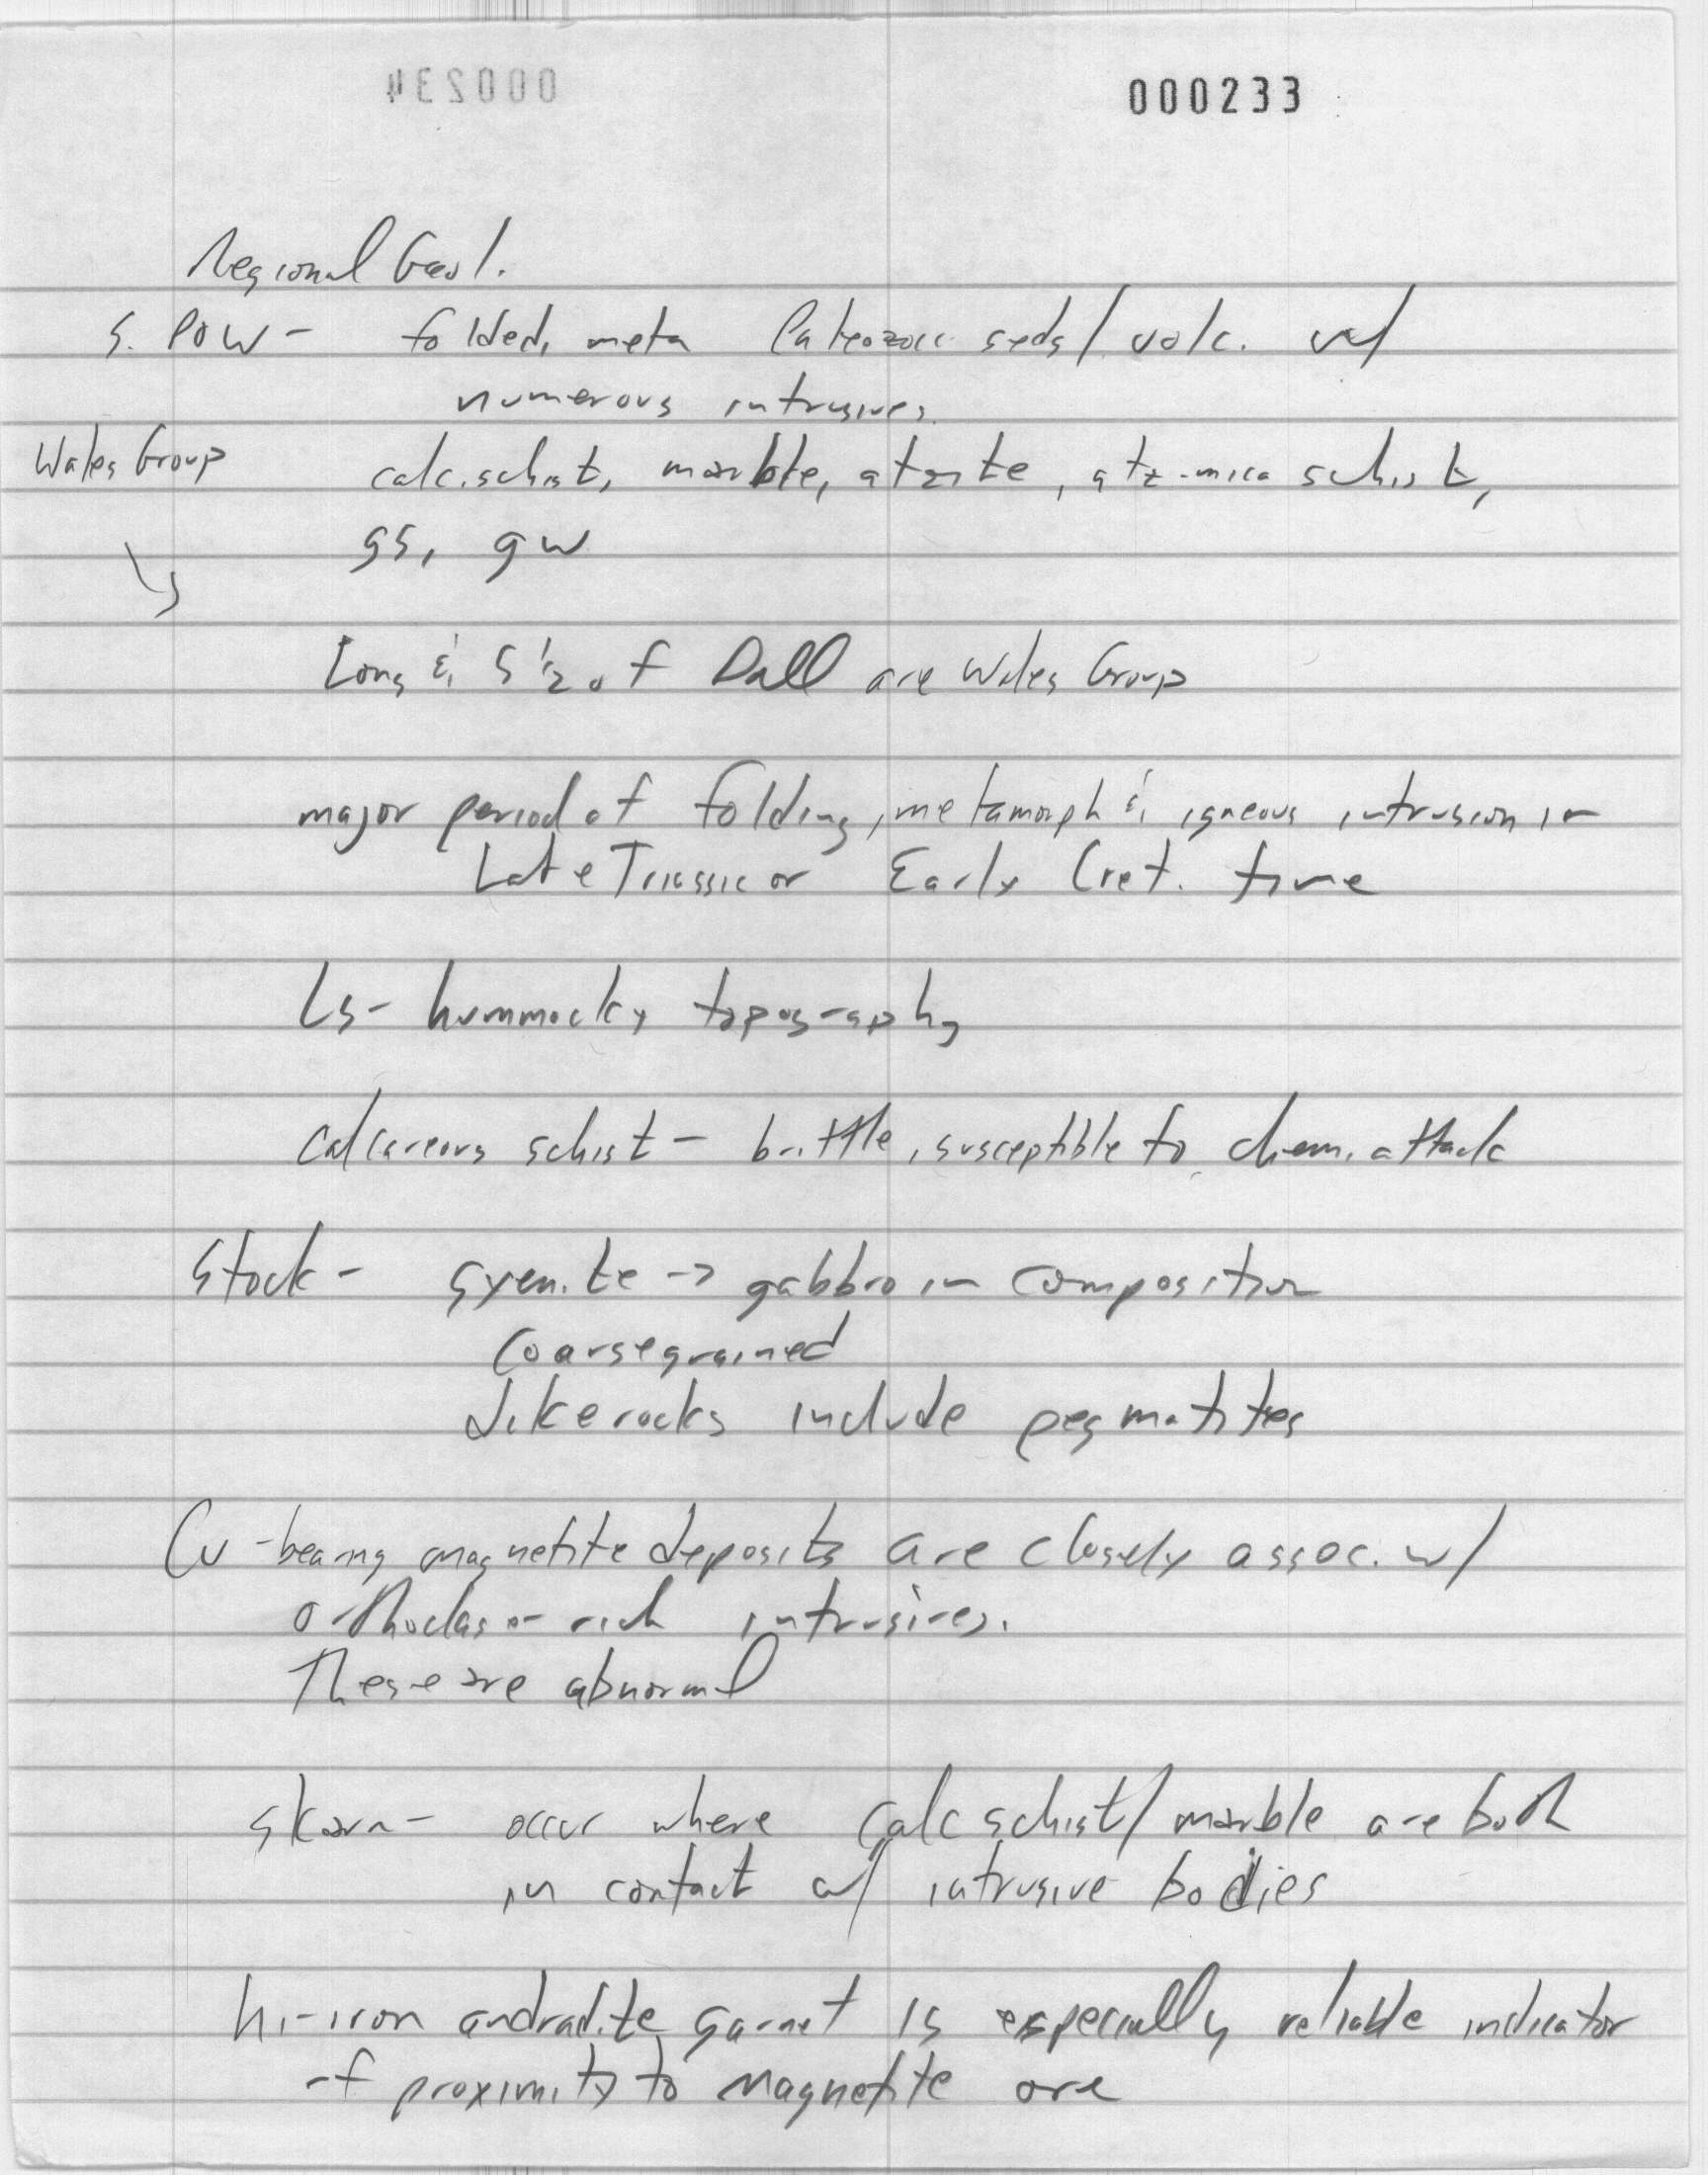 000234
000233
Regional Geol.
S. POW - folded, meta Paleozoic seds / volc. w/
numerous intrusives.
Wales Group calc. schist, marble, qtzite, qtz-mica schist,
gs, gw
Long & S 1/2 of Dall are Wales Group
major period of folding, metamorph & igneous intrusion in
Late Triassic or Early Cret. time
Ls - hummocky topography
calcareous schist - brittle, susceptible to chem. attack
Stock - syenite -> gabbro in composition
coarse grained
dike rocks include pegmatites
Cu-bearing magnetite deposits are closely assoc. w/
rich intrusives.
These are abnormal
skarn - occur where calc schist / marble are both
in contact w/ intrusive bodies
hi-iron andradite garnet is especially reliable indicator
of proximity to magnetite ore